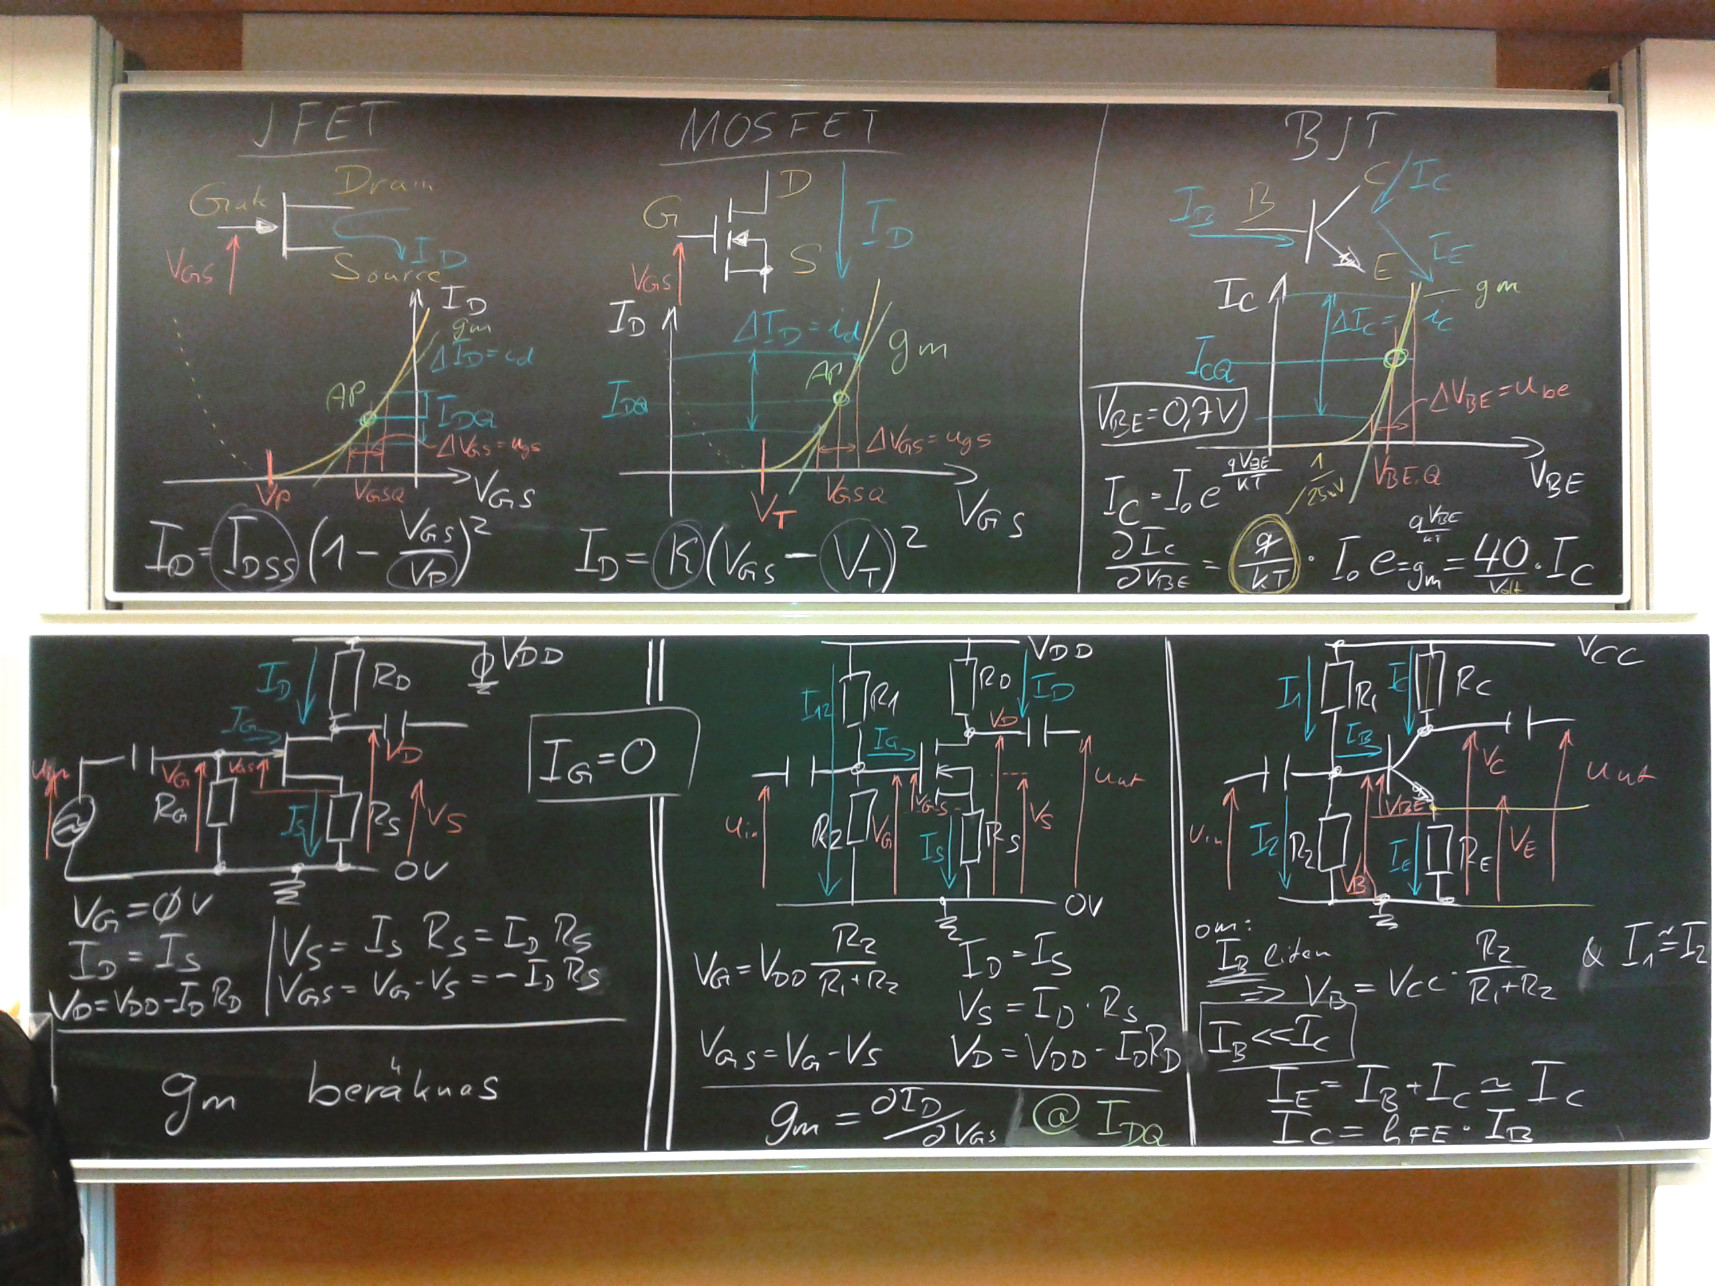 JFET
Gate
Drain
Source
I_D
V_GS
I_D
gm
ΔI_D = id
AP
I_DQ
ΔV_GS = ugs
V_P
V_GSQ
V_GS
I_D = I_DSS (1 - V_GS/V_P)^2
MOSFET
G
D
S
I_D
V_GS
I_D
ΔI_D = id
gm
AP
I_DQ
ΔV_GS = ugs
V_T
V_GSQ
V_GS
I_D = K (V_GS - V_T)^2
BJT
I_B
B
C
I_C
E
I_E
I_C
gm
ΔI_C = ic
I_CQ
V_BE = 0,7V
ΔV_BE = ube
V_BE,Q
V_BE
I_C = I_o e^(qV_BE/kT)
1/25mV
∂I_C/∂V_BE = q/kT · I_o e^(qV_BE/kT) = gm = 40/Volt · I_C
V_DD
I_D
R_D
I_G
V_D
uin
V_G
V_GS
R_G
I_S
R_S
V_S
0V
V_G = ØV
I_D = I_S
V_D = V_DD - I_D R_D
V_S = I_S R_S = I_D R_S
V_GS = V_G - V_S = - I_D R_S
gm beräknas
I_G = 0
V_DD
I_12
R1
R_D
I_D
V_D
I_G
uin
R2
V_G
V_GS
I_S
R_S
V_S
uut
0V
V_G = V_DD R2/(R1+R2)
I_D = I_S
V_S = I_D · R_S
V_GS = V_G - V_S
V_D = V_DD - I_D R_D
gm = ∂I_D/∂V_GS @ I_DQ
V_CC
I1
R1
I_C
R_C
I_B
V_C
uut
uin
V_BE
I2
R2
I_E
R_E
V_E
V_B
om:
I_B liten
& I1 ≈ I2
=> V_B = V_CC · R2/(R1+R2)
I_B << I_C
I_E = I_B + I_C ≈ I_C
I_C = h_FE · I_B